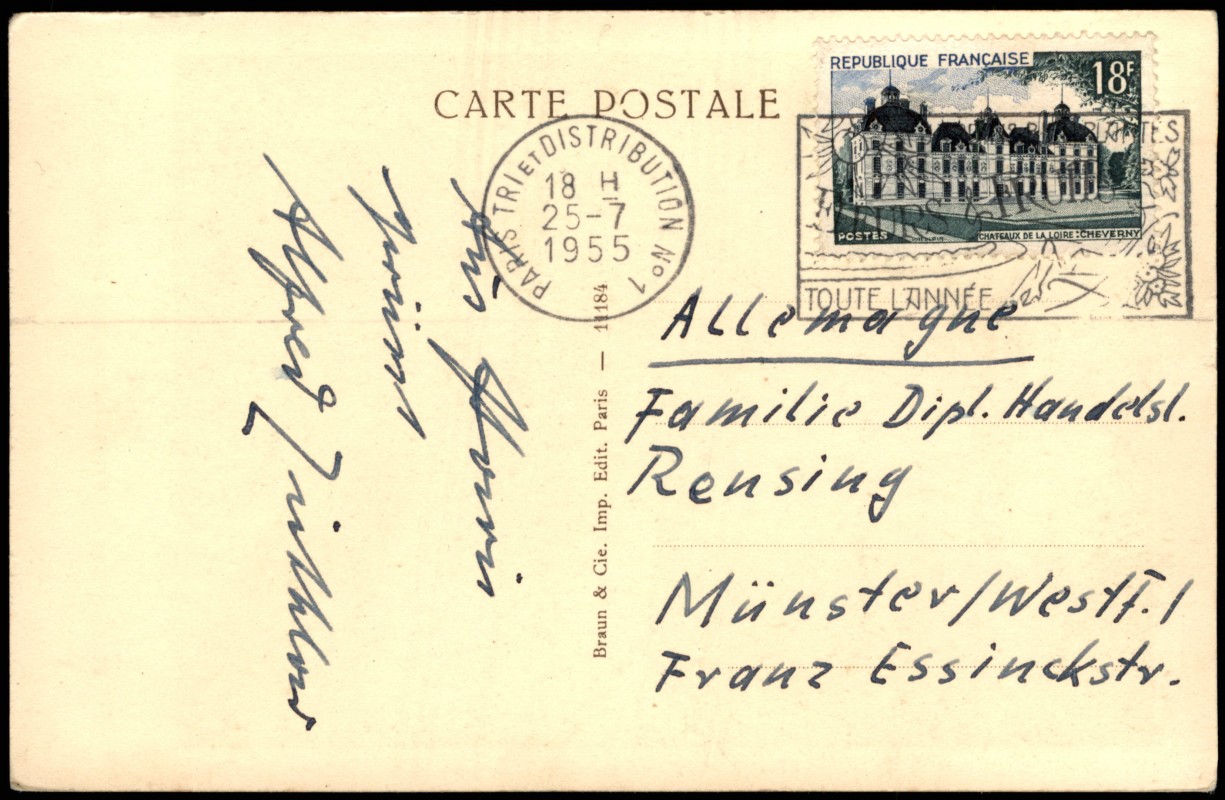 CARTE POSTALE
REPUBLIQUE FRANÇAISE
18F
POSTES
CHATEAUX DE LA LOIRE: CHEVERNY
PARIS TRI ET DISTRIBUTION No 1
18 H
25-7
1955
PLANTES
FLEURS & FRUITS
TOUTE L'ANNÉE
Aus
Alfred
Braun & Cie. Imp. Edit. Paris — 11184
Allemagne
Familie Dipl. Handelsl.
Rensing
Münster/Westf./
Franz Essinckstr.